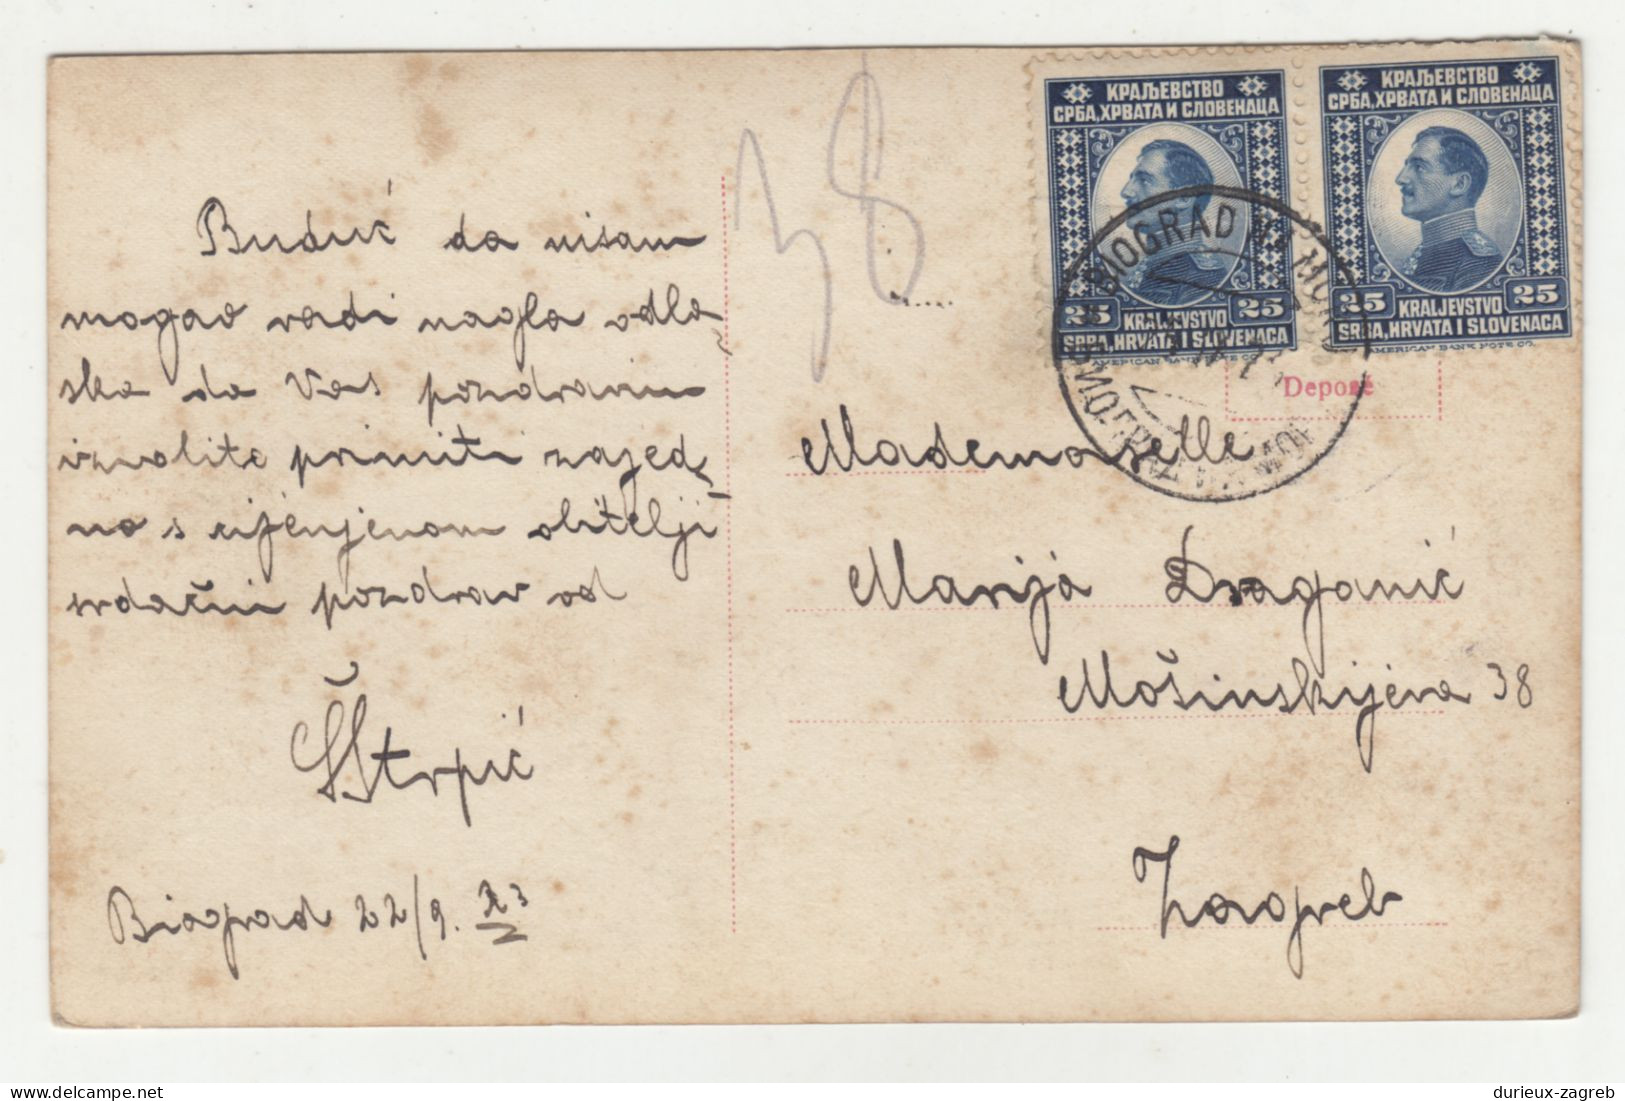 Buduć da nisam
mogao radi nagla odla-
ska da Vas pozdravim
izvolite primiti zajed-
no s cijenjenom obitelji
srdačni pozdrav od
Štrpić
Biograd 22/9. 23
38
КРАЉЕВСТВО
СРБА, ХРВАТА И СЛОВЕНАЦА
25 KRALJEVSTVO 25
SRBA, HRVATA I SLOVENACA
AMERICAN BANK NOTE CO.
КРАЉЕВСТВО
СРБА, ХРВАТА И СЛОВЕНАЦА
25 KRALJEVSTVO 25
SRBA, HRVATA I SLOVENACA
AMERICAN BANK NOTE CO.
BIOGRAD NA MORU
Deposé
Mademoiselle
Marija Draganić
Mošinskijeva 38
Zagreb
delcampe.net
durieux-zagreb